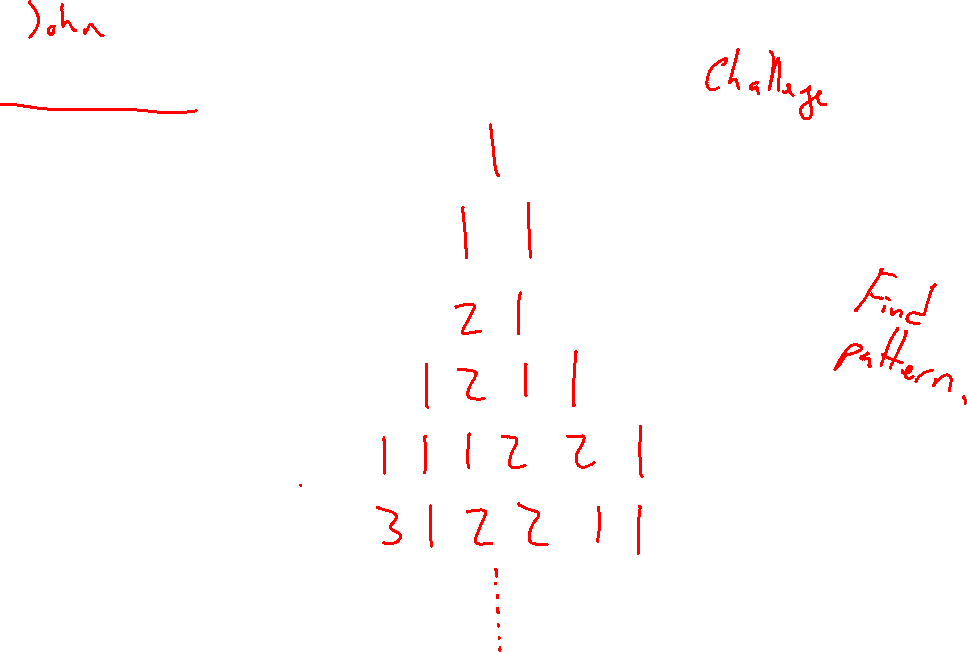 John
Challege
1
1 1
2 1
1 2 1 1
1 1 1 2 2 1
3 1 2 2 1 1
Find
pattern.